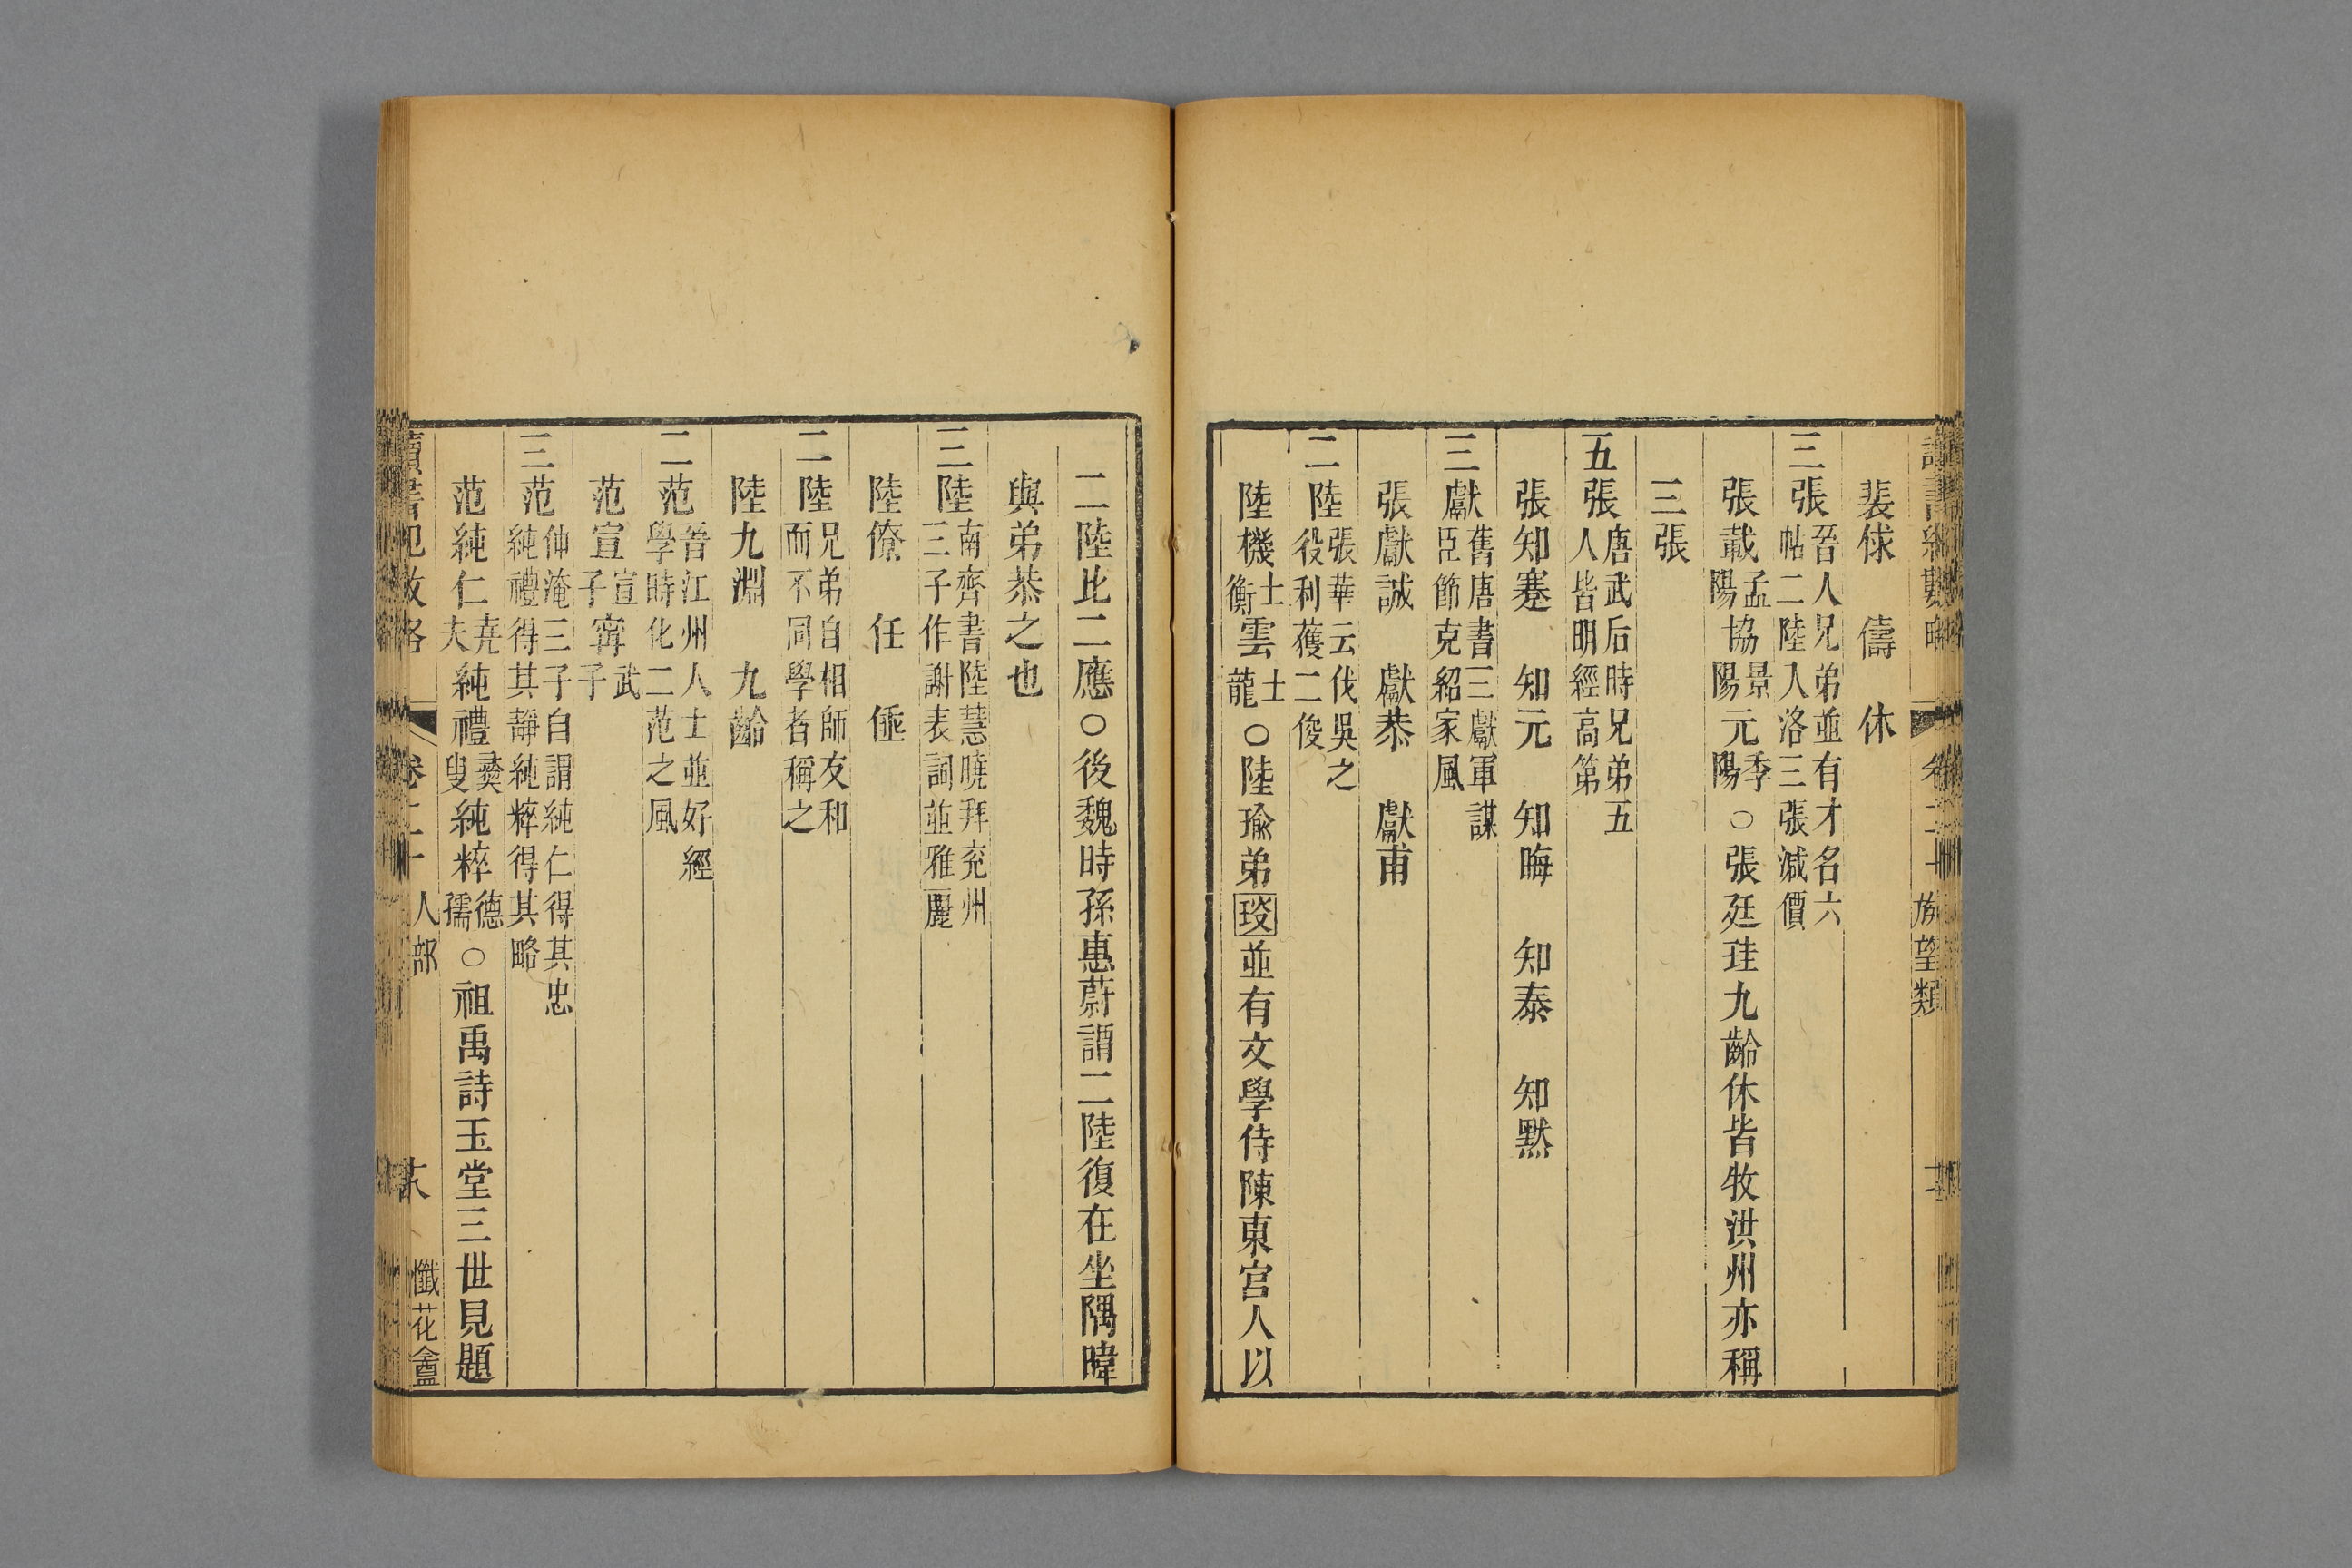 族望類
裴俅　儔　休
三張晉人兄弟並有才名六
帖二陸入洛三張減價
張載孟陽協景陽元季陽○張廷珪九齡休皆牧洪州亦稱
三張
五張唐武后時兄弟五
人皆明經高第
張知蹇　知元　知晦　知泰　知默
三獻舊唐書三獻軍謀
臣節克紹家風
張獻誠　獻恭　獻甫
二陸張華云伐吳之
役利獲二俊
陸機士衡雲士龍○陸瑜弟琰並有文學侍陳東宮人以
二陸比二應○後魏時孫惠蔚謂二陸復在坐隅暐
與弟恭之也
三陸南齊書陸慧曉拜兖州
三子作謝表詞並雅麗
陸僚　任　倕
二陸兄弟自相師友和
而不同學者稱之
陸九淵　九齡
二范晉江州人士並好經
學時化二范之風
范宣宣子甯武子
三范仲淹三子自謂純仁得其忠
純禮得其靜純粹得其略
范純仁堯夫純禮彝叟純粹德孺○祖禹詩玉堂三世見題
讀書紀數略　卷二十　人部　懺花盦